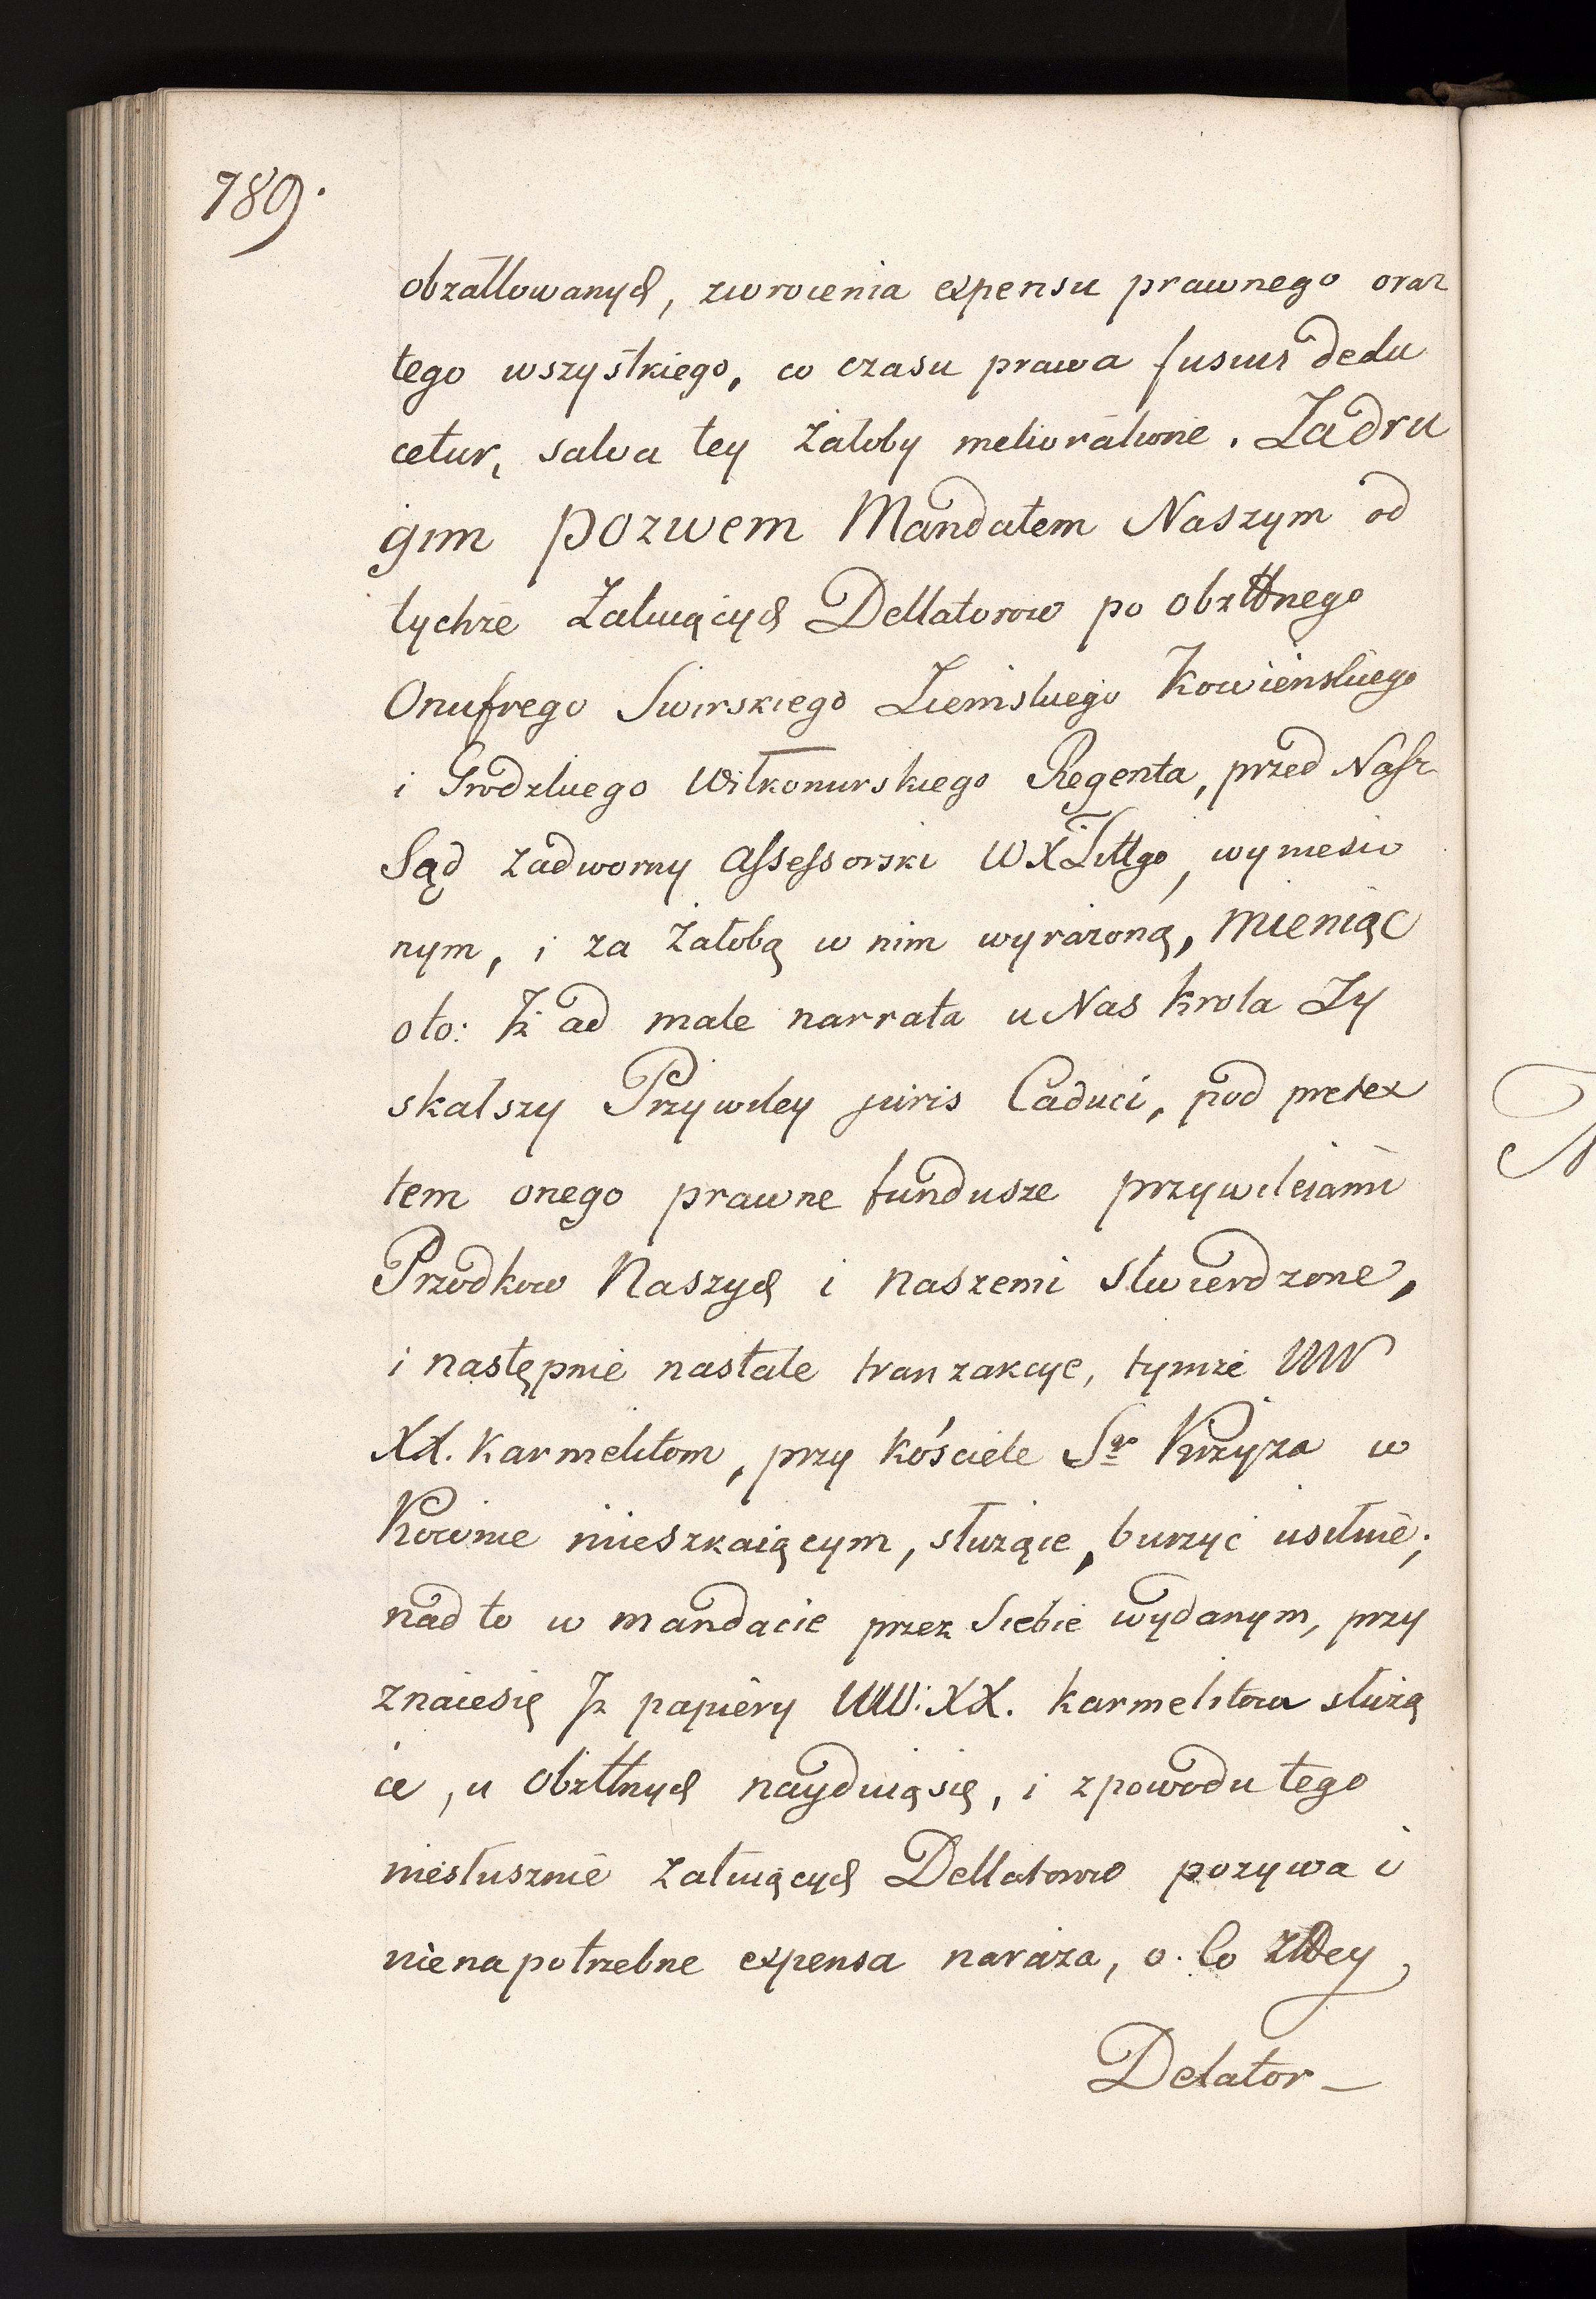 789.
obżałłowanych, zwrocenia expensu prawnego oraz
tego wszystkiego, co czasu prawa fusius dedu
cetur, salva tey żałoby melioratione. Za dru
gim pozwem Mandatem Naszym od
tychże Żałuiących Dellatorow po obżłłnego
Onufrego Swirskiego Ziemskiego Kowienskiego
i Grodzkiego Wiłkomirskiego Regenta, przed Nasz
Sąd Zadworny Assessorski W X Littgo, wyniesio
nym, i za żałobą w nim wyrażoną, mieniąc
oto: Iż ad male narrata u Nas Krola Zy
skalszy Przywiley juris Caduci, pod pretex
tem onego prawne fundusze przywileiami
Przodkow Naszych i naszemi stwierdzone,
i następnie nastałe tranzakcye, tymże WW
XX. Karmelitom, przy kościele Sgo Krzyża w
Kownie mieszkaiącym, służące, burzyć usiłuie;
nad to w mandacie przez siebie wydanym, przy
znaiesię Iż papiery WW: XX. Karmelitow służą
ce, u obżłłnych nayduią się, i z powodu tego
niesłusznie żałuiących Dellatorow pozywa i
nie na potrzebne expensa naraża, o. Co żłłcy
Delator